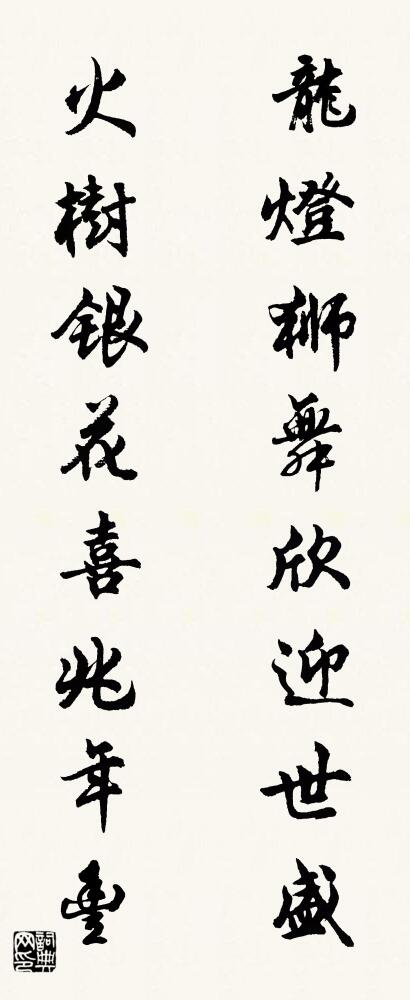 龍燈獅舞欣迎世盛
火樹銀花喜兆年豐
詞典网印